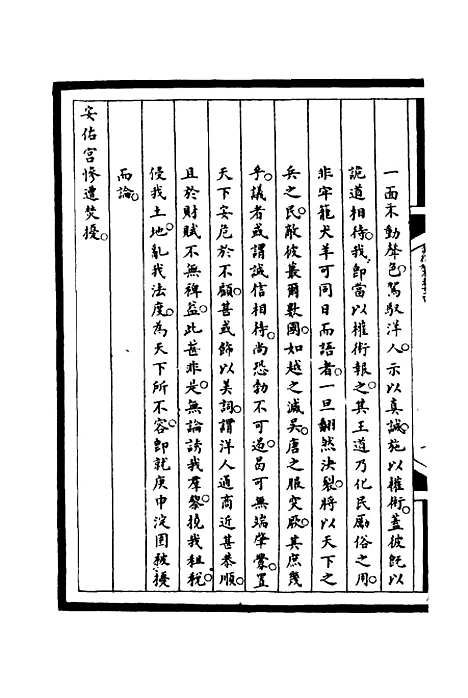 一面不動聲色。駕馭洋人。示以真誠。施以權術。蓋彼既以
詭道相待。我即當以權術報之。其王道乃化民勵俗之用。
非牢籠犬羊可同日而語者。一旦翻然決裂。將以天下之
兵之民。敵彼蕞爾數國。如越之滅吳。唐之服突厥。其庶幾
乎。議者或謂誠信相待。尚恐勃不可遏。曷可無端肇釁。置
天下安危於不顧。甚或飾以美詞。謂洋人通商近甚恭順。
且於財賦不無裨益。此甚非是。無論誘我羣黎。撓我租稅。
侵我土地。亂我法度。為天下所不容。即就庚申淀園被擾
而論。
安佑宮慘遭焚擾。